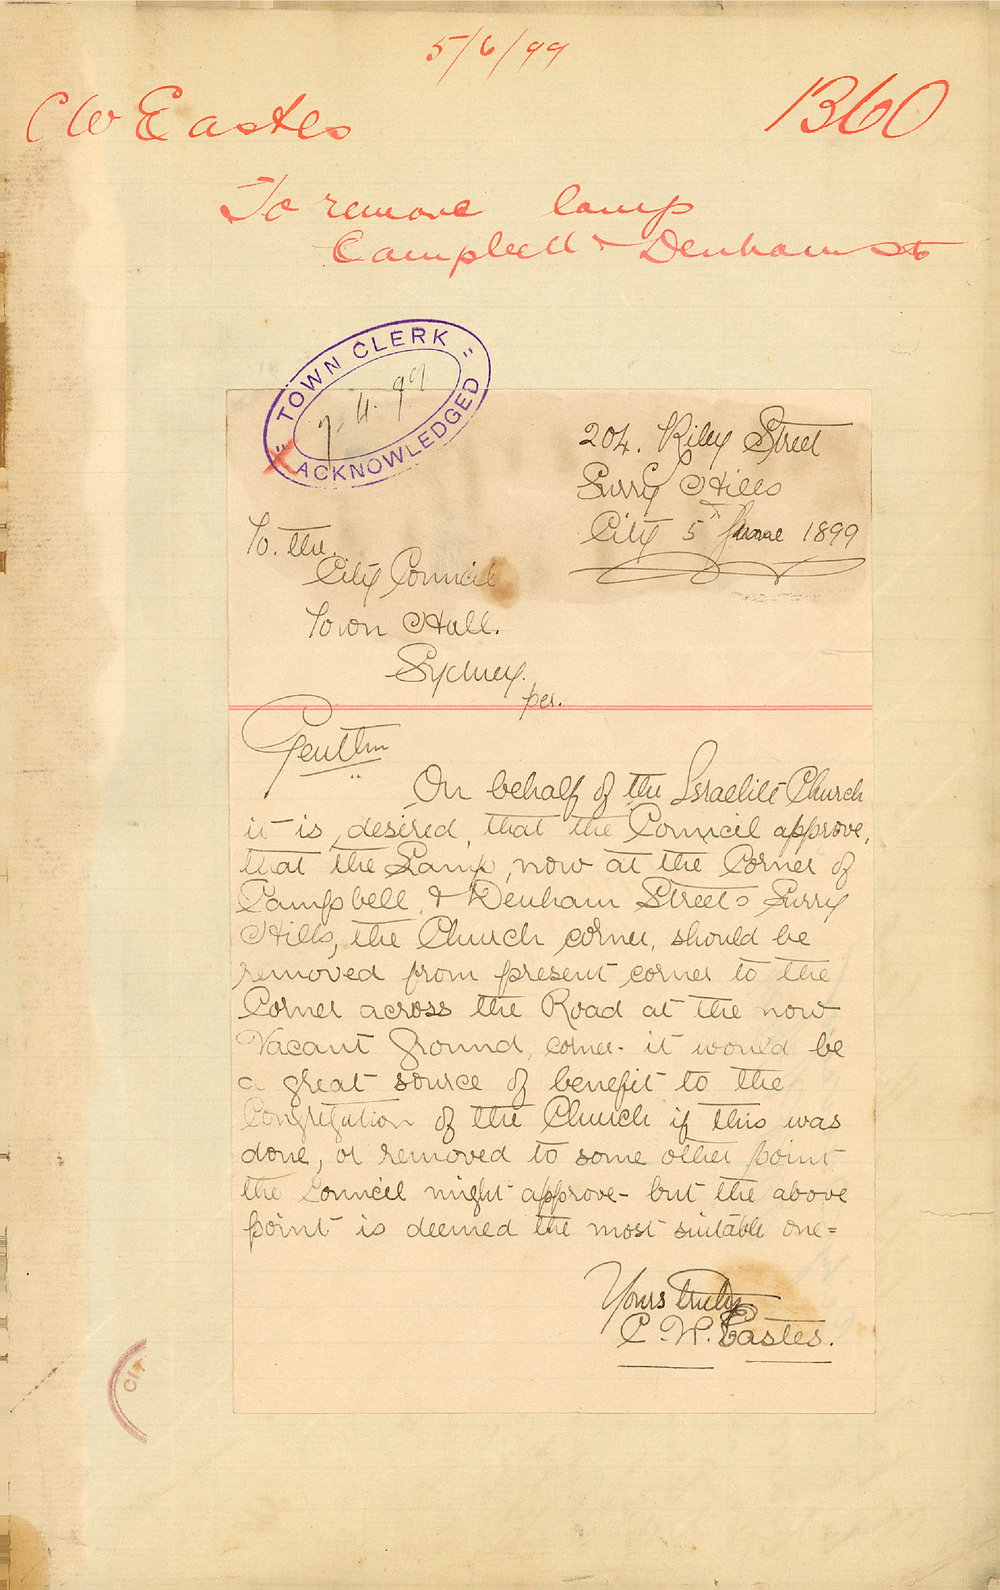 5/6/99
C W Eastes
1360
To remove lamp
Campbell & Denham Sts
" TOWN CLERK "
7. 4. 99
ACKNOWLEDGED
204. Riley Street
Surry Hills
City 5th June 1899
To. the.
City Council
Town Hall.
Sydney.
per.
Gentlm
On behalf of the Israelite Church
it is, desired, that the Council approve,
that the Lamp, now at the Corner of
Campbell, & Denham Streets Surry
Hills, the Church corner, should be
removed from present corner to the
Corner across the Road at the now
Vacant Ground, corner - it would be
a great source of benefit to the
Congregation of the Church if this was
done, or removed to some other point
the Council might approve - but the above
point is deemed the most suitable one =
Yours truly
C. W. Eastes.
CIT